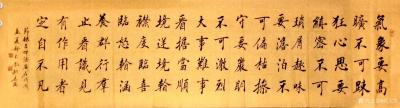 氣象要高
曠不可疎
狂心思要
縝密不可
瑣屑趣味
要澹泊不
可偏枯操
守要嚴明
不可激烈
大事難事
看擔當
境
襟度臨喜
臨怒看涵
養群行群
止看識見
有作用者
定自不凡